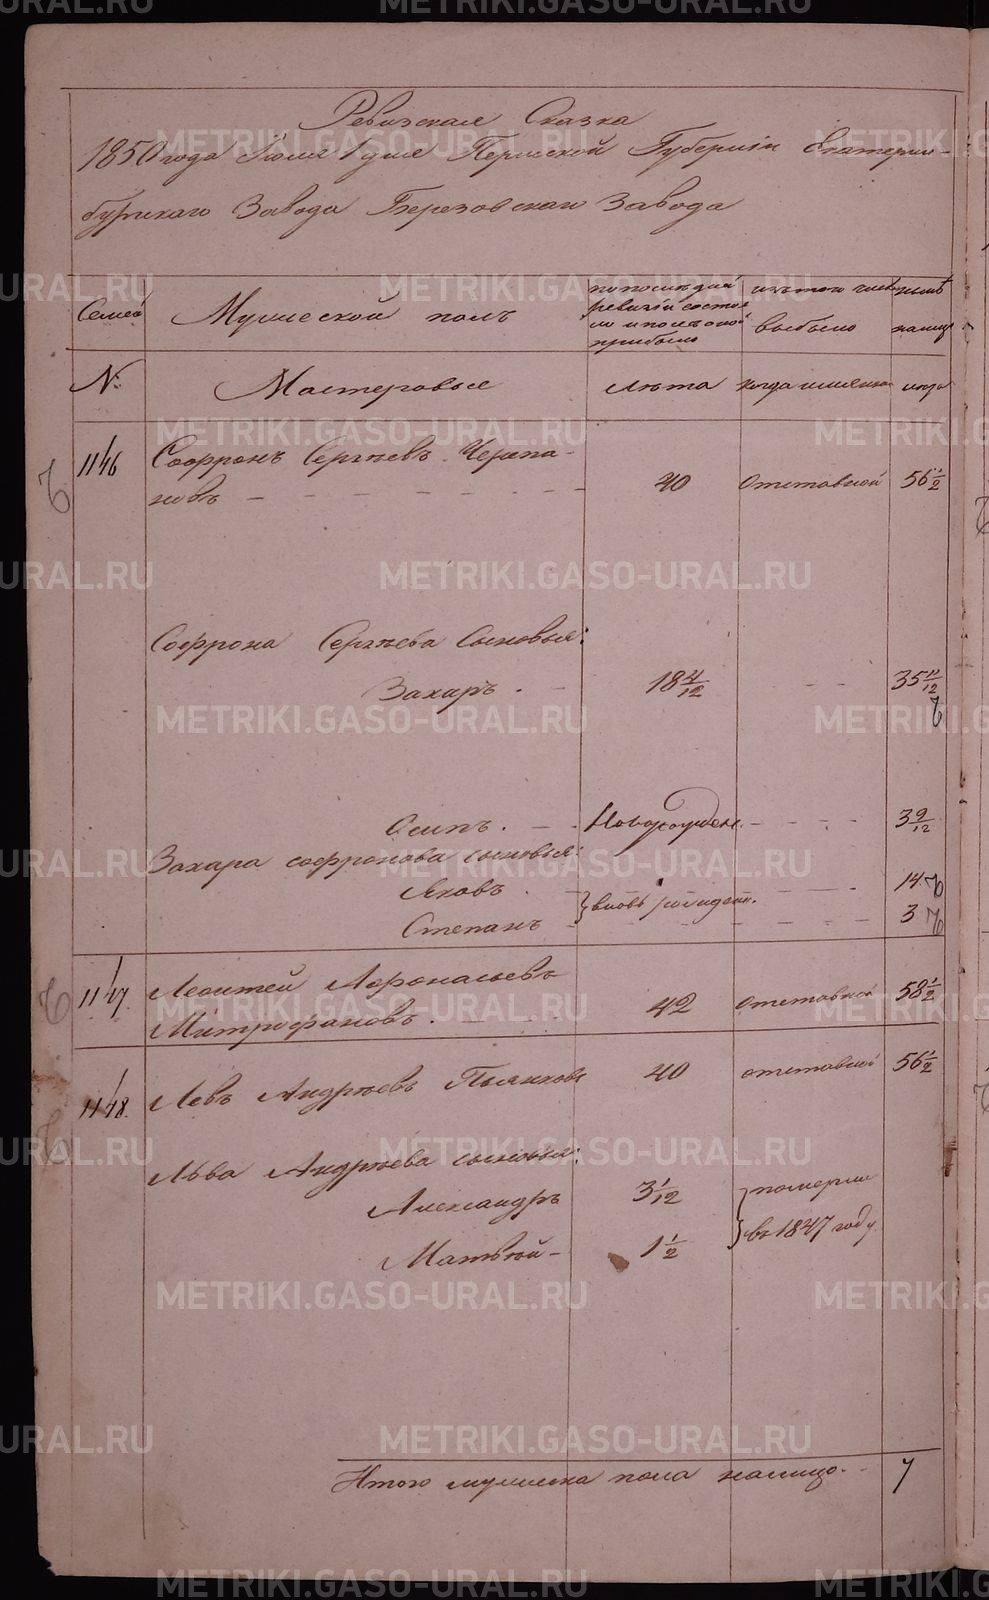 Ревизская Сказка
1850 года Июля 1 дня Пермской Губерніи Екатерин-
бургскаго Завода Березовскаго Завода
Семей
Мужеской полъ
по последней ревизіи состояло и после оной прибыло
изъ того числа выбыло
ныне налицо
№
Мастеровые
Лѣта
когда именно
лѣта
1146
Софронъ Сергѣевъ Черепа-
новъ
40
Отставной
56 1/2
Софрона Сергѣева Сыновья:
Захаръ
18 4/12
35 11/12
Осипъ
Новорожден.
3 9/12
Захара софронова сыновья:
Яковъ
вновь рожден.
14
Степанъ
3
1147
Леонтей Афонасьевъ
Митрофановъ
42
отставной
58 1/2
1148
Левъ Андрѣевъ Пьянковъ
40
отставной
56 1/2
Льва Андрѣева сыновья:
Александръ
3 1/12
померли
Матвѣй
1 1/2
въ 1847 году
Итого мужеска пола налицо
7
METRIKI.GASO-URAL.RU